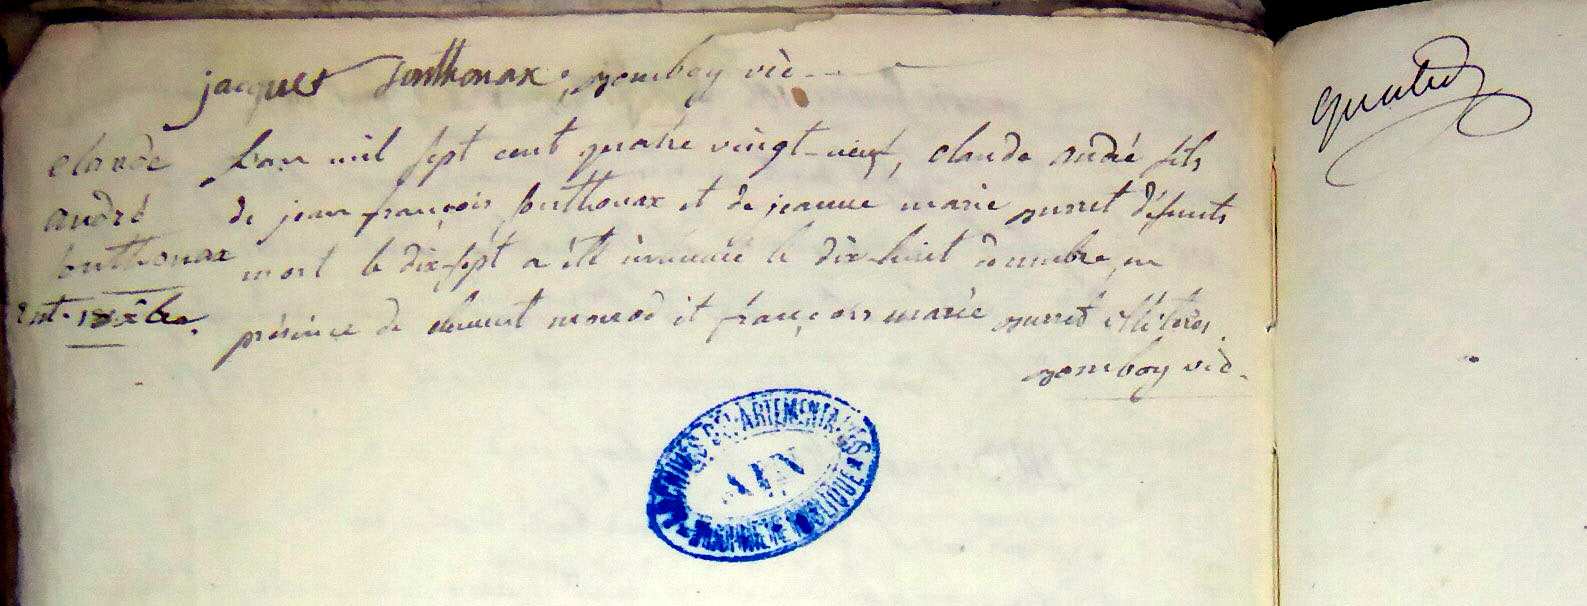 jacques sonthonax, gomboy vic.
claude
andré
sonthonax
Ent. 18 xbre.
L'an mil sept cent quatre vingt-neuf, claude andré fils
de jean françois sonthonax et de jeanne marie murret défunts
mort le dix-sept a été inhumé le dix-huit décembre en
présence de clément monod et françois marie murret illiterés.
gomboy vic.
ARCHIVES DÉPARTEMENTALES
AIN
PROPRIÉTÉ PUBLIQUE